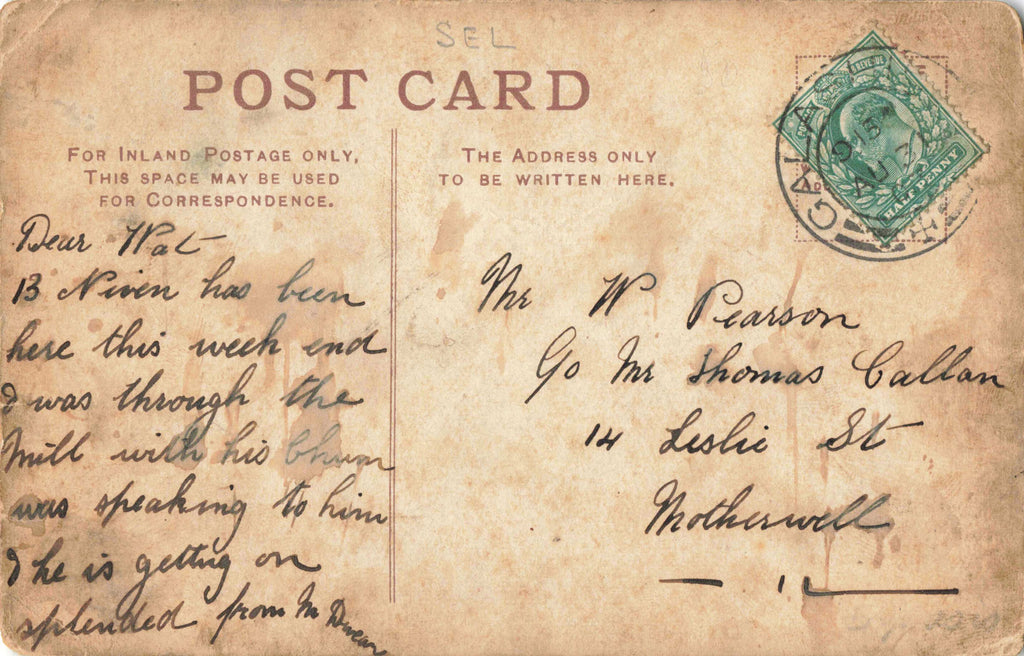 SEL
POST CARD
FOR INLAND POSTAGE ONLY,
THIS SPACE MAY BE USED
FOR CORRESPONDENCE.
THE ADDRESS ONLY
TO BE WRITTEN HERE.
REVENUE
HALF PENNY
GALA
AU 3
Dear Wat
B Niven has been
here this week end
& was through the
Mill with his Chum
was speaking to him
& he is getting on
splended from M
Mr W Pearson
C/o Mr Thomas Callan
14 Leslie St
Motherwell